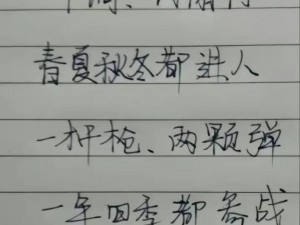 春夏秋冬都进人
一杆枪、两颗弹
一年四季都备战